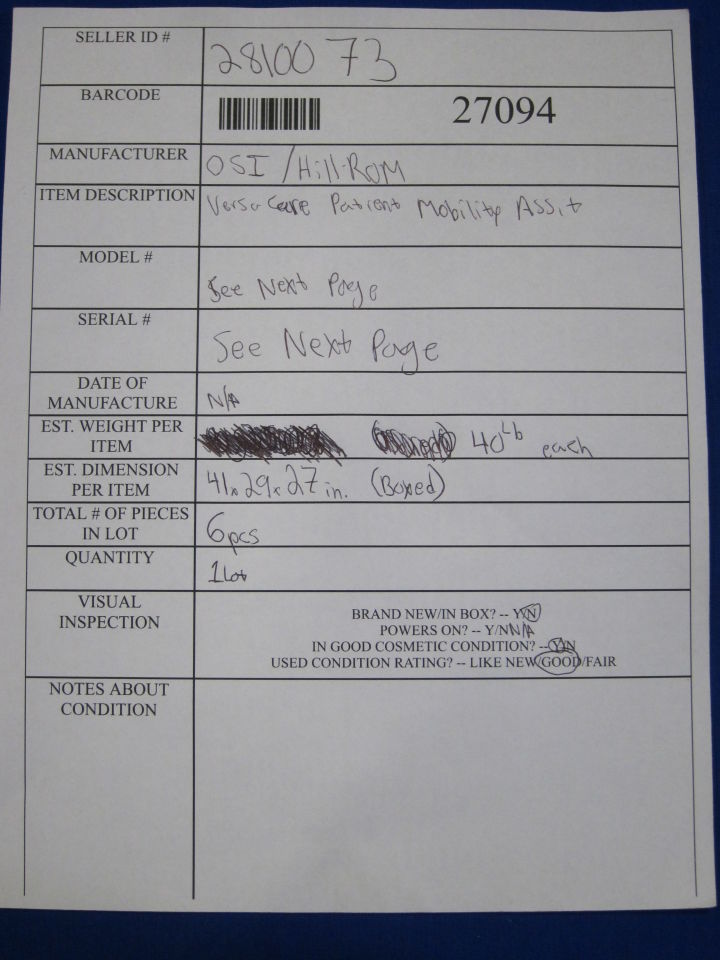 SELLER ID # 2810073
BARCODE 27094
MANUFACTURER OSI/Hill-ROM
ITEM DESCRIPTION VersaCare Patient Mobility Assit
MODEL #
See Next Page
SERIAL #
See Next Page
DATE OF
MANUFACTURE N/A
EST. WEIGHT PER
ITEM 40 Lb each
EST. DIMENSION
PER ITEM 41x29x27 in. (Boxed)
TOTAL # OF PIECES
IN LOT 6pcs
QUANTITY 1 Lot
VISUAL
INSPECTION
BRAND NEW/IN BOX? -- Y/N
POWERS ON? -- Y/N N/A
IN GOOD COSMETIC CONDITION? -- Y/N
USED CONDITION RATING? -- LIKE NEW/GOOD/FAIR
NOTES ABOUT
CONDITION